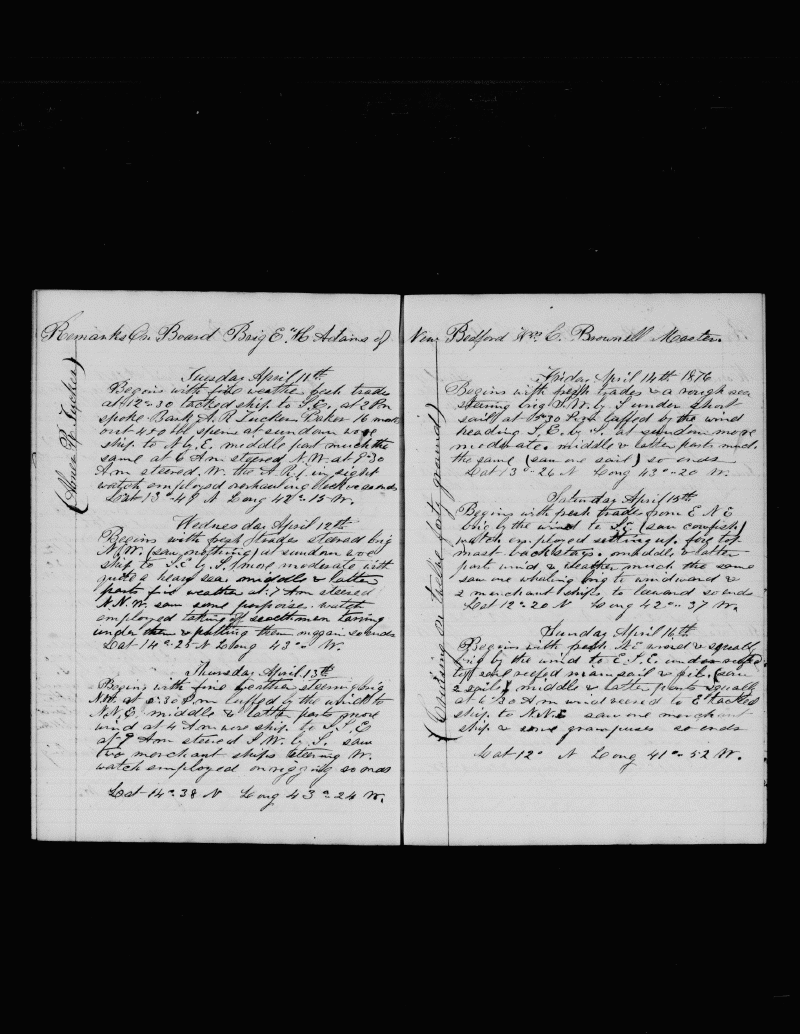 Remarks On Board Brig E. H. Adams of
(Abner R Tucker)
Tuesday April 11th
Begins with fine weather fresh trades
at 12-30 tacked ship to S.E. at 2 P.m
spoke Bark A. R Tucker Ricker 16 mos
out 450 bbl sperm at sundown wore
ship to N by E. middle part much the
same at 6 Am steered N.W. at 9-30
Am steered W. the A R T in sight
watch employed overhauling so ends
Lat 13°-49 N Long 42°-15 W.
Wednesday April 12th
Begins with fresh trades steered brig
N.W. (saw nothing) at sundown wore
ship to S.E by S. more moderate with
quite a heavy sea middle & latter
parts fine weather at 7 Am steered
N.N.W. saw some porpoises watch
employed taking of
under them & putting them again so ends
Lat 14°-25 N Long 43°- W.
Thursday April 13th
Begins with fine weather steering brig
N.W. at 2-30 P.m luffed by the wind to
N.N.E. middle & latter parts more
wind at 4 Am wore ship to S.S.E
at 9 Am steered S.W. by S. saw
two merchant ships steering N.
watch employed on rigging so ends
Lat 14°-38 N Long 43°-24 W.
New Bedford Wm C. Brownell Master
(Cruising on twelve forty ground)
Friday April 14th 1876
Begins with fresh trades & a rough sea
steering brig S.W. by S under short
sail at 5-30 P.m luffed by the wind
heading S.E. by S. at sundown more
moderate. middle & latter parts much
the same (saw one sail) so ends
Lat 13°-26 N Long 43°-20 W.
Saturday April 15th
Begins with fresh trades from E N E
brig by the wind to S.E (saw cowfish)
watch employed setting up fore top
mast backstays. middle & latter
parts wind & weather much the same
saw one whaling brig to windward &
2 merchant ships to leeward so ends
Lat 12°-20 N Long 42°-37 W.
Sunday April 16th
Begins with fresh N.E wind & squally
brig by the wind to E.S.E. under reefed
top sail reefed mainsail & jib. (saw
2 sails) middle & latter parts squally
at 6-30 Am wind veered to E tacked
ship to N.N.E saw one merchant
ship & some grampuses so ends
Lat 12° N Long 41°-52 W.